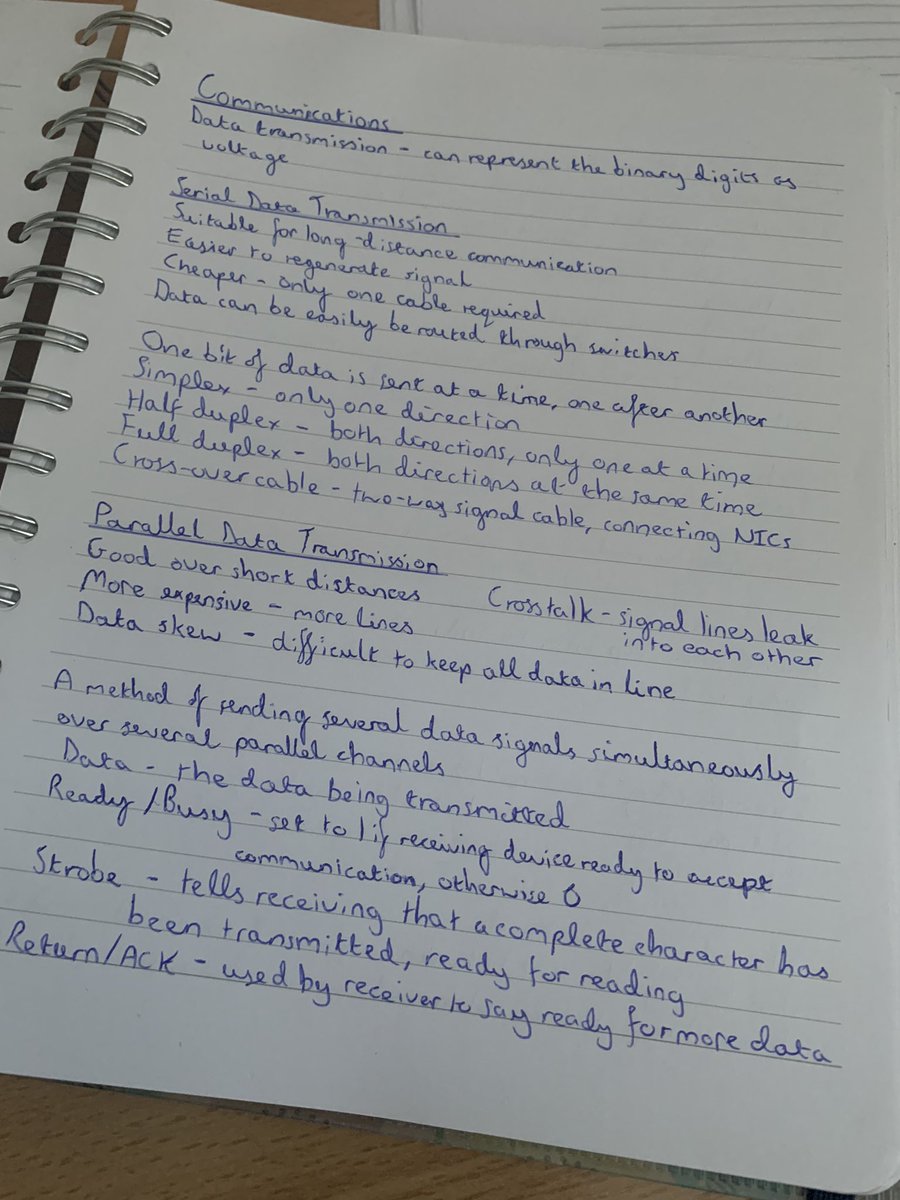 Communications
Data transmission - can represent the binary digits as
voltage
Serial Data Transmission
Suitable for long-distance communication
Easier to regenerate signal
Cheaper - only one cable required
Data can be easily be routed through switches
One bit of data is sent at a time, one after another
Simplex - only one direction
Half duplex - both directions, only one at a time
Full duplex - both directions at the same time
Cross-over cable - two-way signal cable, connecting NICs
Parallel Data Transmission
Good over short distances
More expensive - more lines
Crosstalk - signal lines leak
into each other
Data skew - difficult to keep all data in line
A method of sending several data signals simultaneously
over several parallel channels
Data - the data being transmitted
Ready/Busy - set to 1 if receiving device ready to accept
communication, otherwise 0
Strobe - tells receiving that a complete character has
been transmitted, ready for reading
Return/ACK - used by receiver to say ready for more data